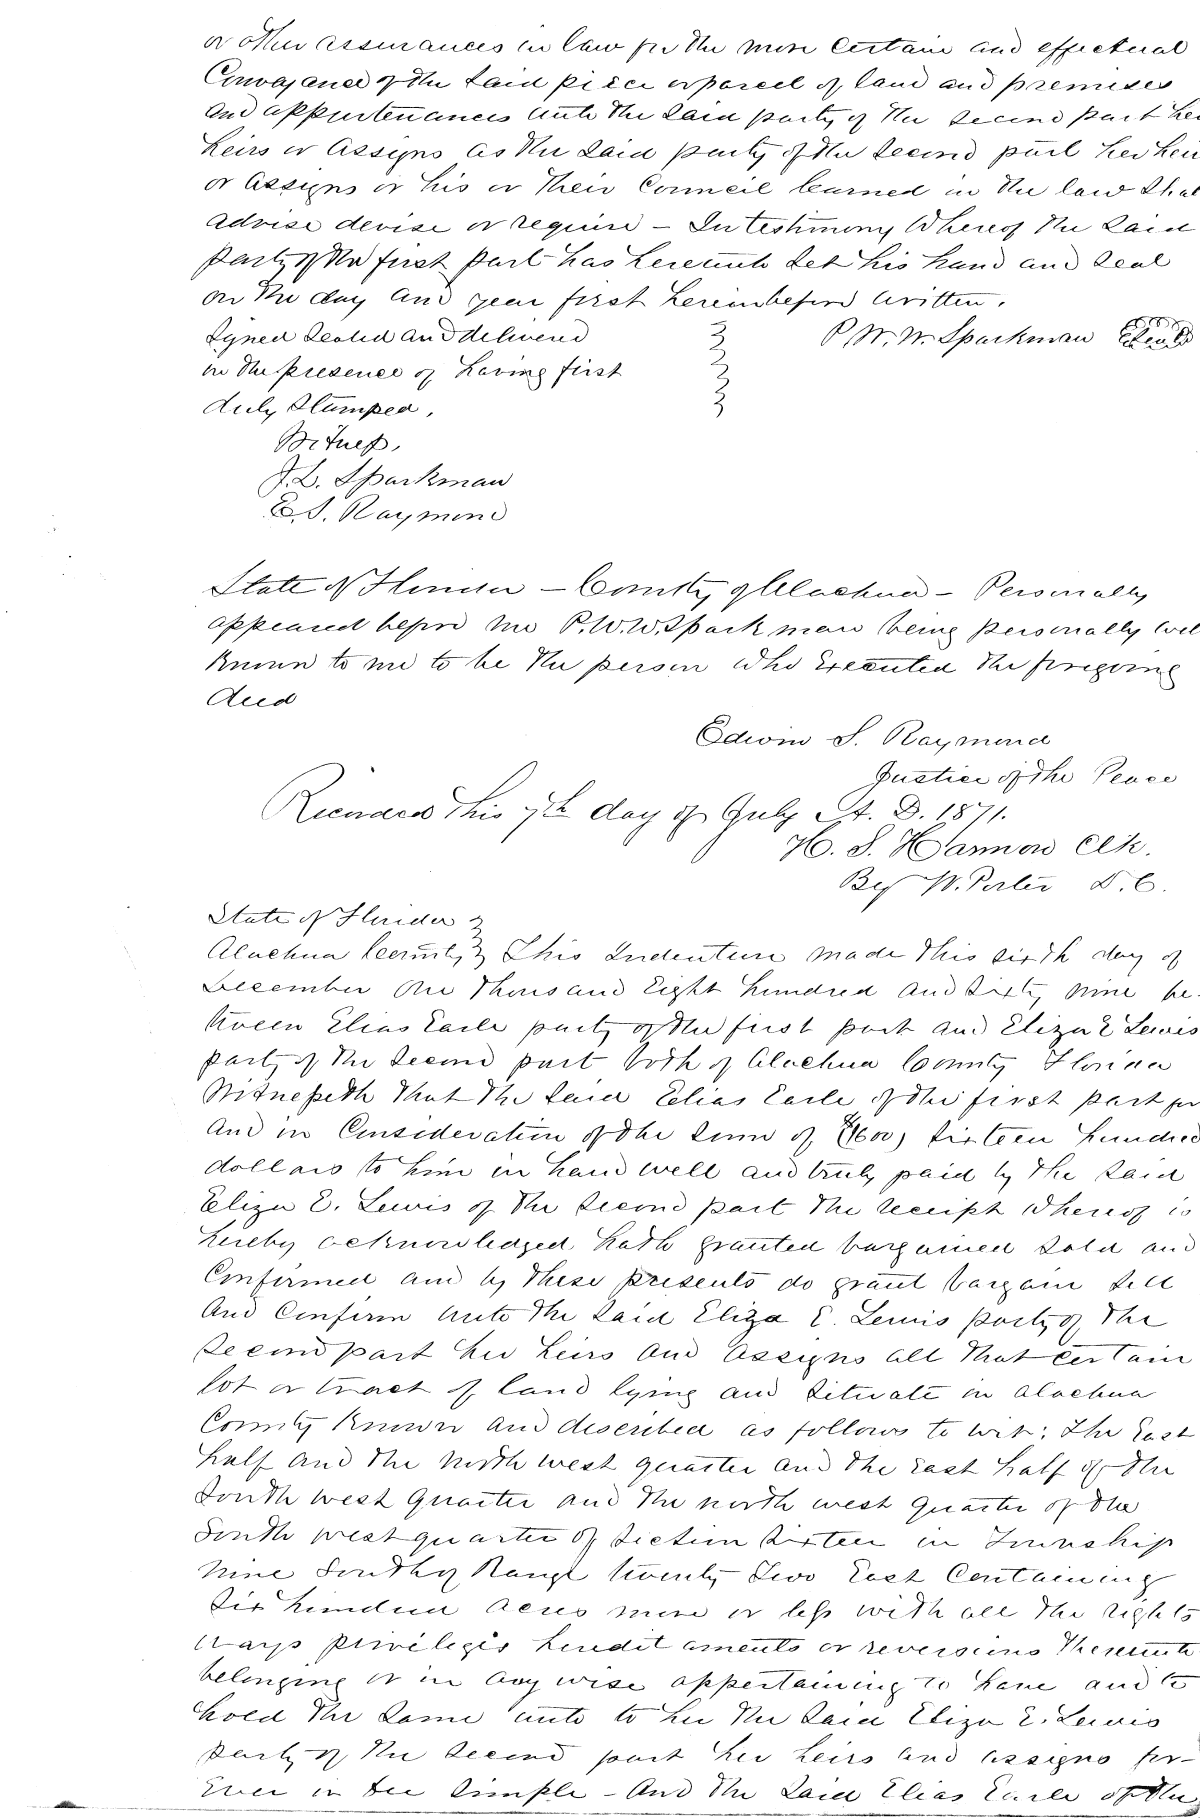 or other assurances in law for the more certain and effectual
Conveyance of the said piece or parcel of land and premises
and appurtenances unto the said party of the second part her
heirs or assigns as the said party of the second part her heirs
or assigns or his or their Council learned in the law shal
advise devise or require – In testimony Whereof the said
party of the first part has hereunto set his hand and seal
on the day and year first hereinbefore written.
Signed Sealed and delivered
P. W. W. Sparkman (Seal)
in the presence of having first
duly Stamped,
Witness,
J. L. Sparkman
E. S. Raymond
State of Florida – County of Alachua – Personally
appeared before me P. W. W. Sparkman being personally well
known to me to be the person who Executed the foregoing
deed
Edwin S. Raymond
Justice of the Peace
Recorded this 7th day of July A. D. 1871.
H. S. Harmon Clk.
By W. Porter D. C.
State of Florida
Alachua County This Indenture made this sixth day of
December One thousand Eight hundred and sixty nine be-
tween Elias Earle party of the first part and Eliza E Lewis
party of the second part both of Alachua County Florida
Witnesseth that the said Elias Earle of the first part for
and in Consideration of the sum of ($1600) Sixteen hundred
dollars to him in hand well and truly paid by the said
Eliza E. Lewis of the second part the receipt whereof is
hereby acknowledged hath granted bargained sold and
Confirmed and by these presents do grant bargain sell
and Confirm unto the said Eliza E. Lewis party of the
second part her heirs and assigns all that certain
lot or tract of land lying and situate in Alachua
County known and described as follows to wit: The East
half and the north west quarter and the East half of the
South west quarter and the north west quarter of the
South west quarter of Section Sixteen in Township
Nine South of Range twenty Two East Containing
Six hundred acres more or less with all the rights
ways privileges heredit aments or reversions thereunto
belonging or in any wise appertaining to have and to
hold the same unto to her the said Eliza E. Lewis
party of the second part her heirs and assigns for-
Ever in fee simple – And the said Elias Earle of the